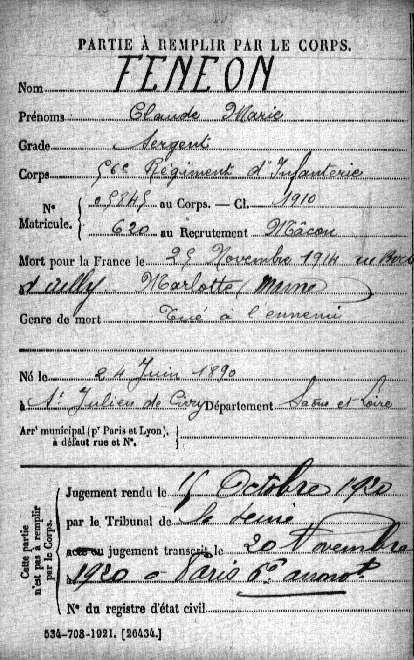 PARTIE À REMPLIR PAR LE CORPS.
Nom FENEON
Prénoms Claude Marie
Grade Sergent
Corps 56e Régiment d'Infanterie
N° Matricule. { 05845 au Corps. — Cl. 1910
620 au Recrutement Mâcon
Mort pour la France le 25 Novembre 1914 au Bois
d'ailly Marlotte (Meuse)
Genre de mort Tué à l'ennemi
Né le 24 Juin 1890
à St Julien de Civry Département Saône et Loire
Arrt municipal (pr Paris et Lyon), à défaut rue et N°. {
Cette partie n'est pas à remplir par le Corps.
Jugement rendu le 15 Octobre 1920
par le Tribunal de la Seine
acte ou jugement transcrit le 20 Novembre
à 1920 a Paris 6e arrondt
N° du registre d'état civil
534-708-1921. [26434.]